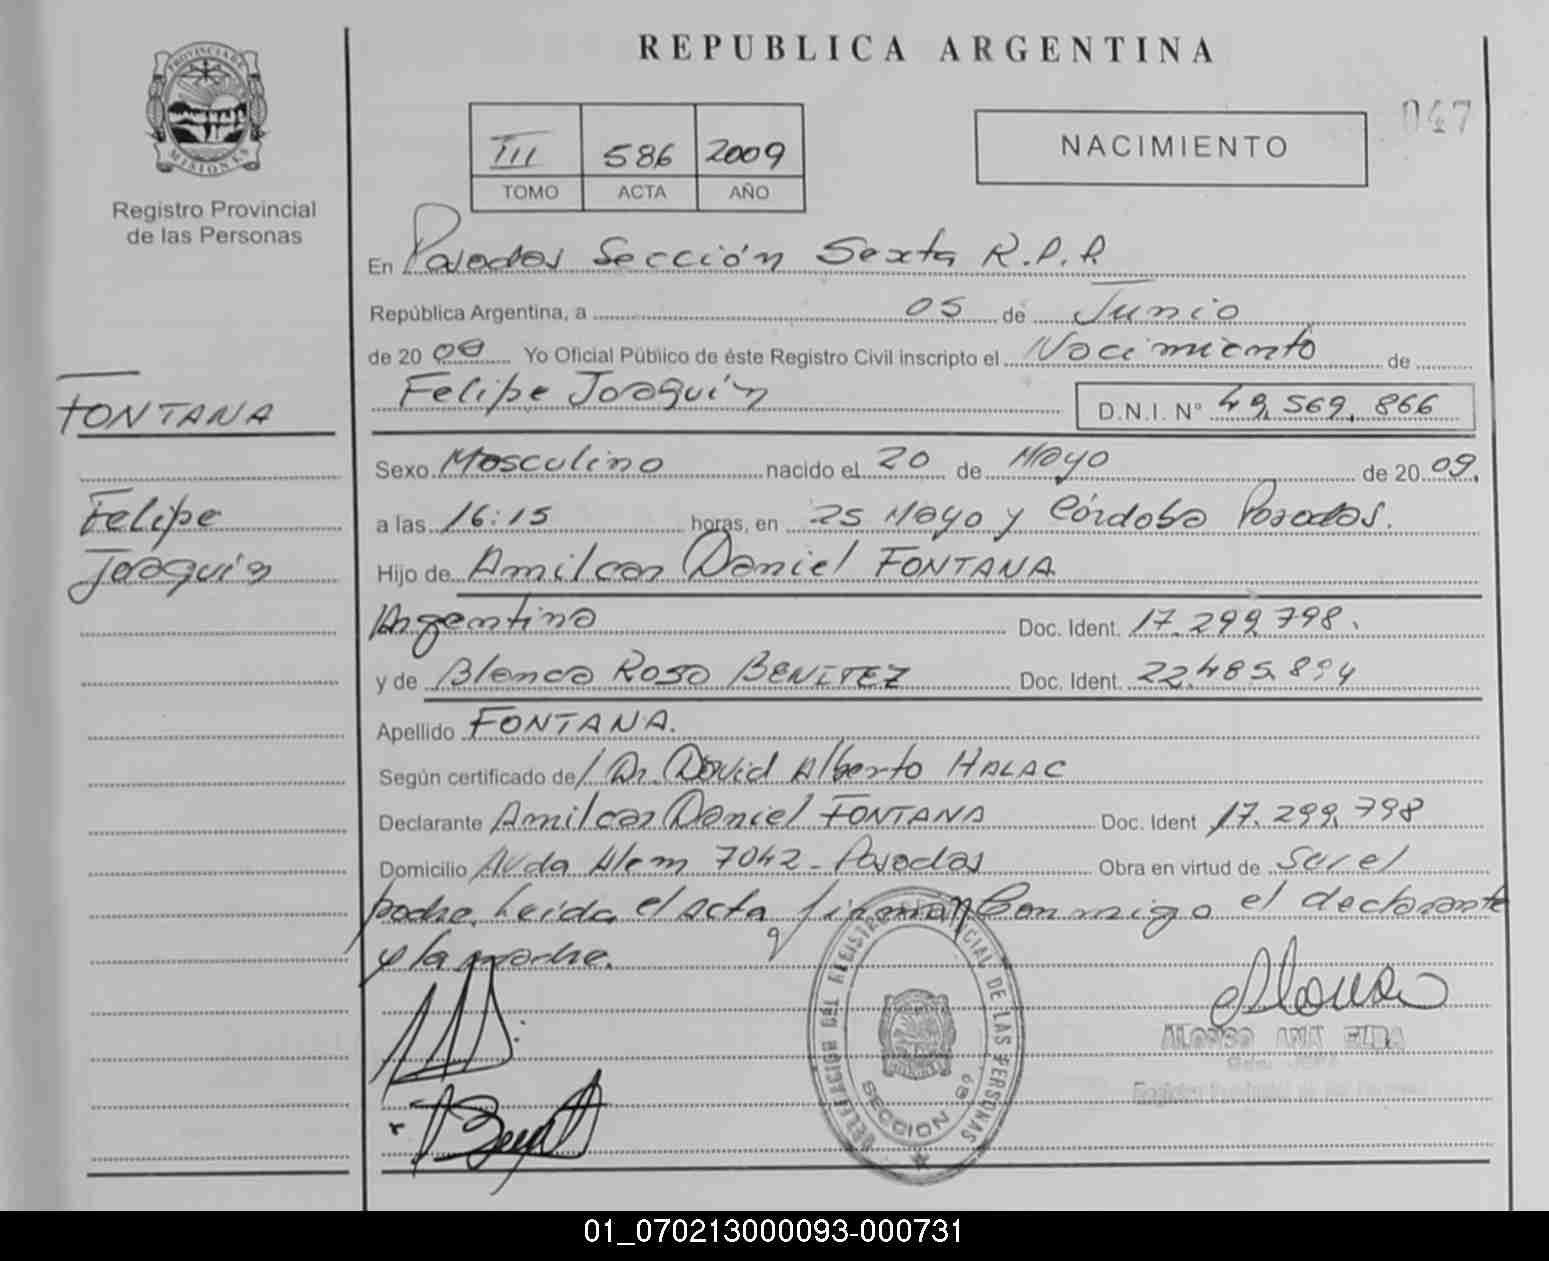 REPUBLICA ARGENTINA
PROVINCIA DE
MISIONES
Registro Provincial
de las Personas
III 586 2009
TOMO ACTA AÑO
NACIMIENTO
047
En Posadas Sección Sexta R.P.P.
República Argentina, a 05 de Junio
de 20 09 Yo Oficial Público de éste Registro Civil inscripto el Nacimiento de
Felipe Joaquín D.N.I. N° 49.569.866
FONTANA
Felipe
Joaquín
Sexo Masculino nacido el 20 de Mayo de 20 09.
a las 16:15 horas, en 25 Mayo y Córdoba Posadas.
Hijo de Amilcar Daniel FONTANA
Argentino Doc. Ident. 17.299.798.
y de Blanca Rosa BENITEZ Doc. Ident. 22.485.894
Apellido FONTANA.
Según certificado de/ Dr. David Alberto HALAC
Declarante Amilcar Daniel FONTANA Doc. Ident 17.299.798
Domicilio Avda Alem 7042 - Posadas Obra en virtud de Ser el
padre. Leída el acta firman Conmigo el declarante
y la madre.
DELEGACION DEL REGISTRO PROVINCIAL DE LAS PERSONAS
SECCION 6º
ALONSO ANA ELBA
01_070213000093-000731